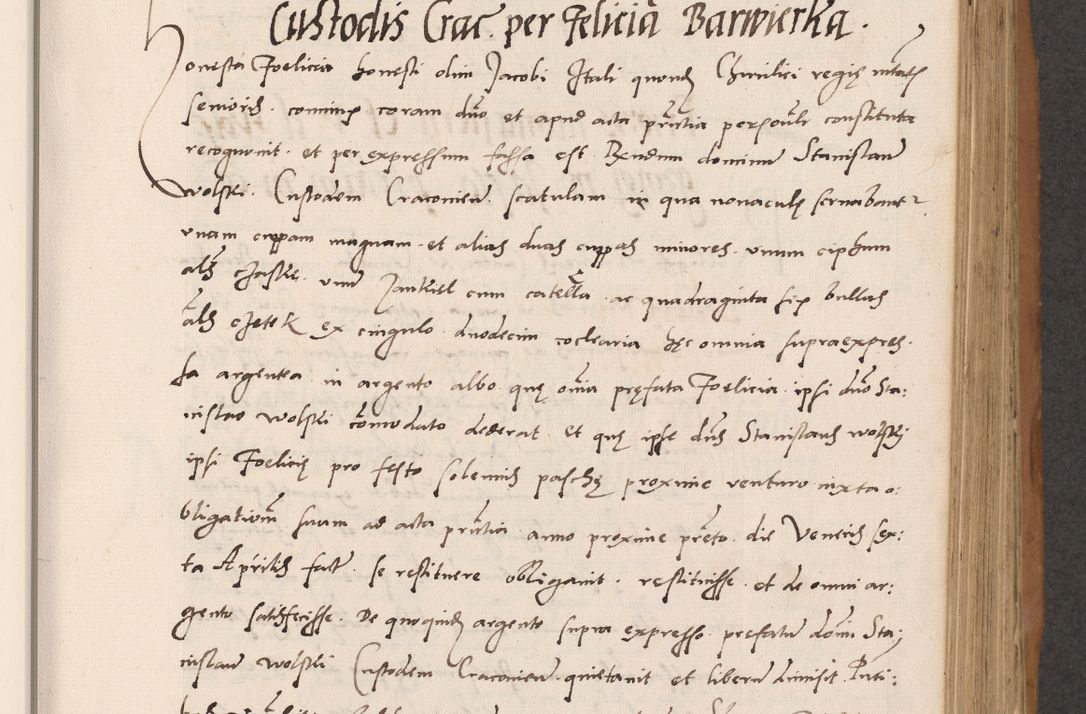 Custodis Crac. per Feliciã Barwierka.
Honesta Foelicia honesti olim Jacobi Itali quondã Chirulici regię mtatis
senioris. cominus coram dño et apud acta pñtia personalr constituta
recognovit. et per expressum fassa est. Rendum dominum Stanislaum
Wolski. Custodem Cracovien. scatulam in qua novaculę servabantr
unam cuppam magnam et alias duas cuppas minores. unum ciphum
als czastkę. unũ cum catella. ac quadraginta six bullas
als czetek ex cingulo. duodecim coclearia hęc omnia supraexpres-
sa argentea in argento albo. quę oĩa pręfata Foelicia ipsi dño Sta:
nislao Wolski cõmodato dederat. et quę ipse dñs Stanislaus Wolskj
ipsi Foelicię pro festo solennis paschę proxime venturo iuxta o:
bligationẽ suam ad acta pñtia anno proxime pręto. die Veneris sex:
ta Aprilis factã. se restituere obligavit. restituisse. et de omni ar:
gento satisfecisse. De quoquidẽ argento supra expresso. prefatũ dõm Sta:
nislaum Wolski Custodem Cracovien. quietavit et liberũ dimisit. Puti: